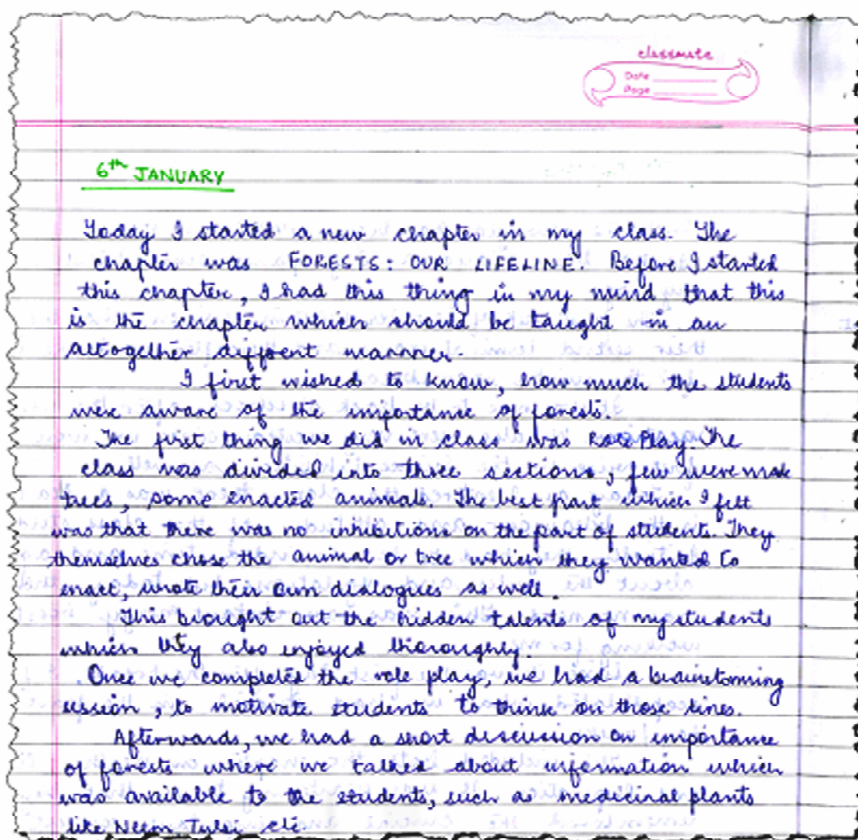 classmate
Date
Page
6th JANUARY
Today I started a new chapter in my class. The
chapter was FORESTS: OUR LIFELINE. Before I started
this chapter, I had this thing in my mind that this
is the chapter which should be taught in an
altogether diffrent manner.
I first wished to know, how much the students
were aware of the importance of forests.
The first thing we did in class was Role Play. The
class was divided into three sections, few were made
trees, some enacted animals. The best part which I felt
was that there was no inhibitions on the part of students. They
themselves chose the animal or tree which they wanted to
enact, wrote their own dialogues as well.
This brought out the hidden talents of my students
which they also enjoyed thoroughly.
Once we completed the role play, we had a brainstorming
session, to motivate students to think on those lines.
Afterwards, we had a short discussion on importance
of forests where we talked about information which
was available to the students, such as medicinal plants
like Neem Tulsi etc